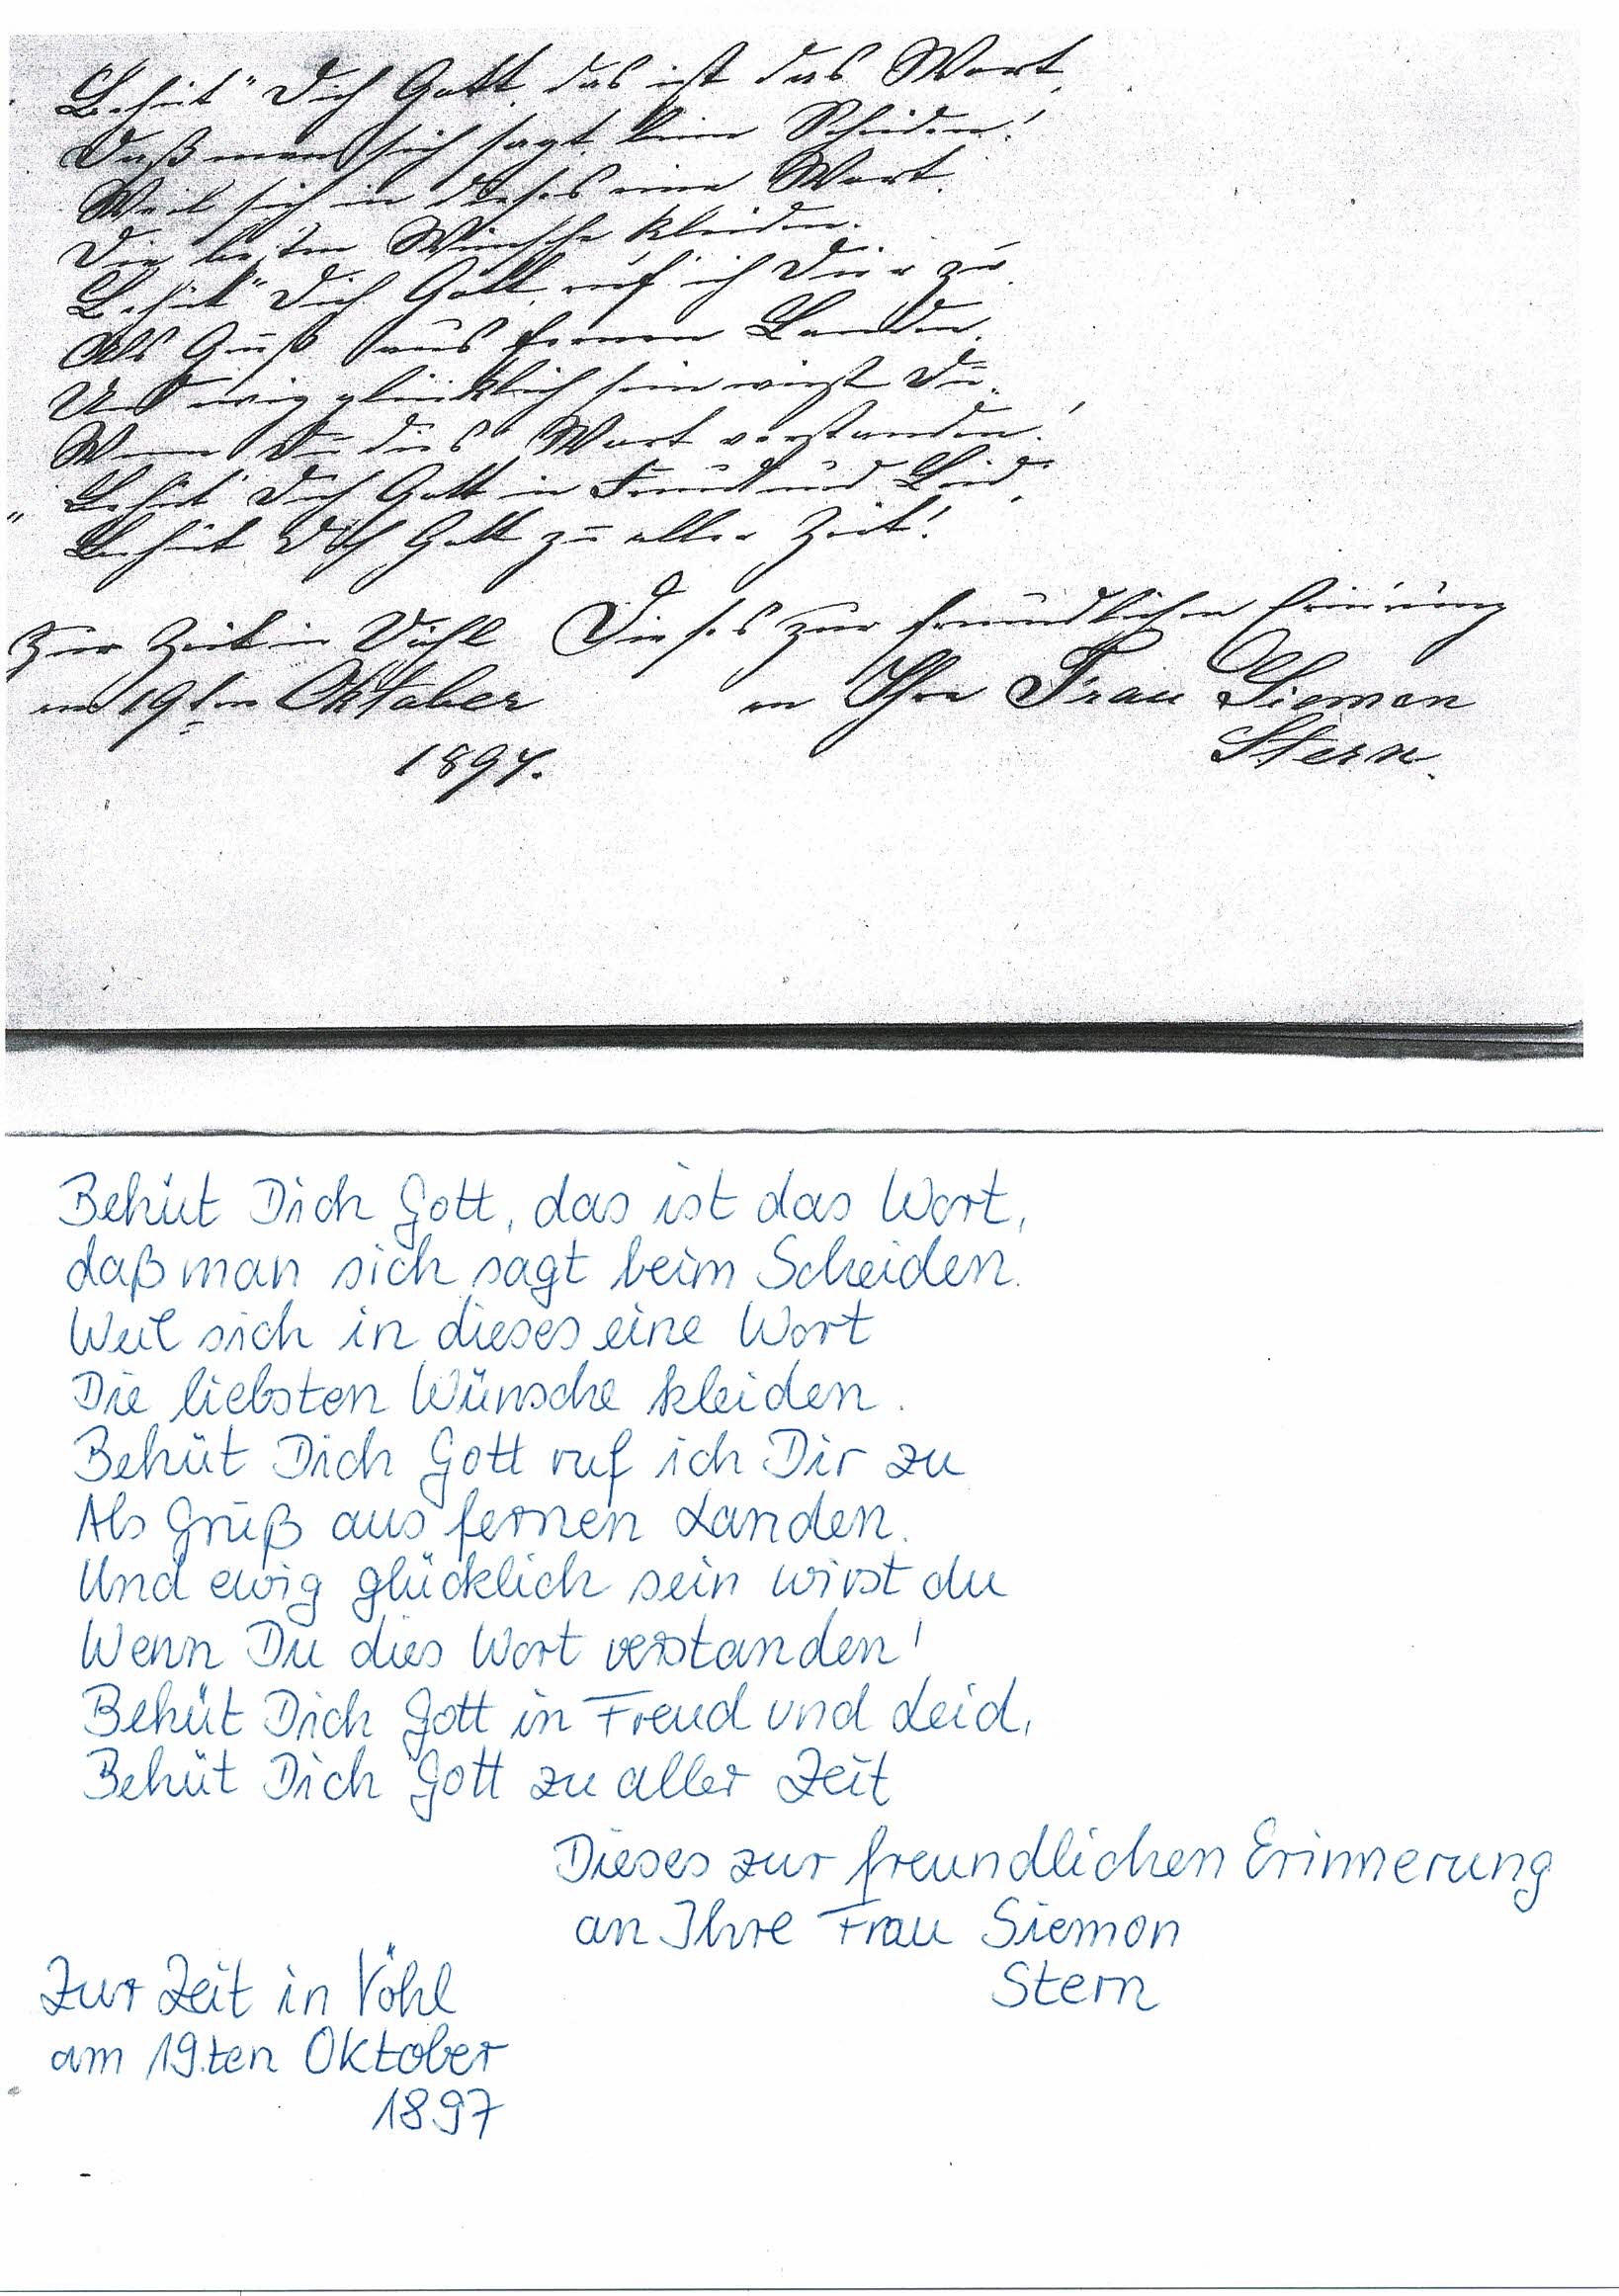 Behüt" Dich Gott, das ist das Wort,
Daß man sich sagt beim Scheiden!
Weil sich in dieses eine Wort
Die liebsten Wünsche kleiden.
Behüt" Dich Gott, ruf ich Dir zu
Als Gruß aus fernen Landen.
Und ewig glücklich sein wirst Du.
Wenn Du dies Wort verstanden!
"Behüt" Dich Gott in Freud und Leid,
Behüt Dich Gott zu aller Zeit!
Zur Zeit in Vöhl Dieses zur freundlichen
am 19ten Oktober an Ihre Frau Siemon
1897. Stern.
Behüt Dich Gott, das ist das Wort,
daß man sich sagt beim Scheiden.
Weil sich in dieses eine Wort
Die liebsten Wünsche kleiden.
Behüt Dich Gott ruf ich Dir zu
Als Gruß aus fernen Landen.
Und ewig glücklich sein wirst du
Wenn Du dies Wort verstanden!
Behüt Dich Gott in Freud und Leid,
Behüt Dich Gott zu aller Zeit
Dieses zur freundlichen Erinnerung
an Ihre Frau Siemon
Stern
Zur Zeit in Vöhl
am 19.ten Oktober
1897